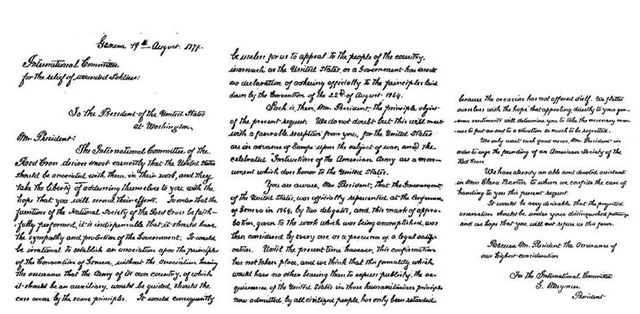 Geneva 19th August 1877.
International Committee
for the relief of wounded Soldiers:
To the President of the United States
at Washington,
Mr. President:
The International Committee of the
Red Cross desires most earnestly that the United States
should be associated with them in their work, and they
take the liberty of addressing themselves to you with the
hope that you will second their efforts. In order that the
functions of the National Society of the Red Cross be faith-
fully performed, it is indispensable that it should have
the sympathy and protection of the Government. It would
be irrational to establish an association upon the principles
of the Convention of Geneva, without the association having
the assurance that the Army of its own country, of which
it should be an auxiliary, would be guided, should the
case occur by the same principles. It would consequently
be useless for us to appeal to the people of the country,
inasmuch as the United States, as a Government has made
no declaration of adhering officially to the principles laid
down by the Convention of the 22nd of August 1864.
Such is, then, Mr. President, the principal object
of the present request. We do not doubt but this will meet
with a favorable reception from you, for the United States
are in advance of Europe upon the subject of war, and the
celebrated Instructions of the American Army are a mon-
ument which does honor to the United States.
You are aware, Mr. President, that the Government
of the United States, was officially represented at the Conference
of Geneva in 1864, by two delegates, and this mark of appro-
bation, given to the work which was being accomplished, was
then considered by every one as a precursor of a legal ratifi-
cation. Until the present time, however, this confirmation
has not taken place, and we think that this formality, which
would have no other bearing than to express publicly, the ac-
quiescence of the United States in those humanitarian principles
now admitted by all civilized people, has only been retarded
because the occasion has not offered itself. We flatter
ourselves with the hope that appealing directly to your gen-
erous sentiments will determine you to take the necessary meas-
ures to put an end to a situation so much to be regretted.
We only wait such good news, Mr. President in
order to urge the founding of an American Society of the
Red Cross.
We have already an able and devoted assistant
in Miss Clara Barton to whom we confide the care of
handing to you this present request.
It would be very desirable that the projected
association should be under your distinguished patronage
and we hope that you will not refuse us this favor.
Receive Mr. President the assurance of
our highest consideration
For the International Committee
G. Moynier
President